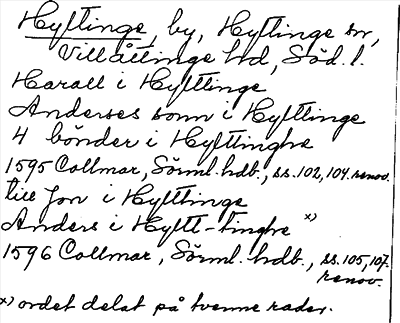 Hyltinge, by, Hyltinge sn,
Villåttinge hd, Söd. l.
Harall i Hylltinge
Anderses sonn i Hylltinge
4 bönder i Hylltinghe
1595 Collmar, Sörml. hdb., ss. 102, 104. renov.
till Jon i Hylltinge
Anders i Hyllt-tinghe x)
1596 Collmar, Sörml. hdb., ss. 105, 107.
renov.
x) ordet delat på tvenne rader.